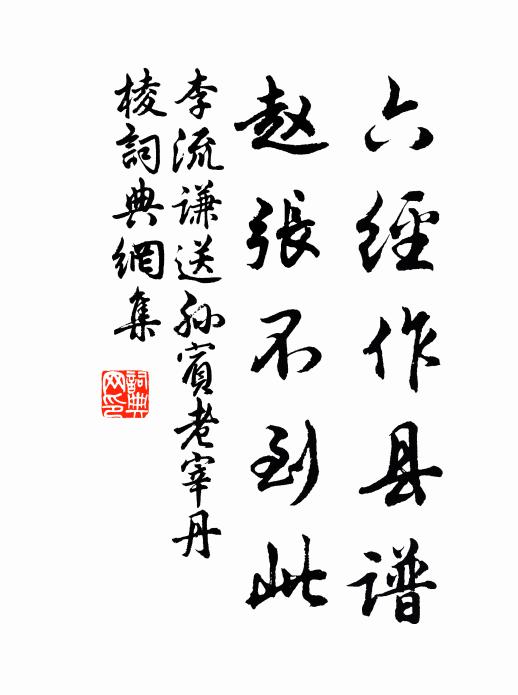 六經作县谱
赵張不到此
李流谦送孙賓老宰丹
棱詞典網集
詞典
网印